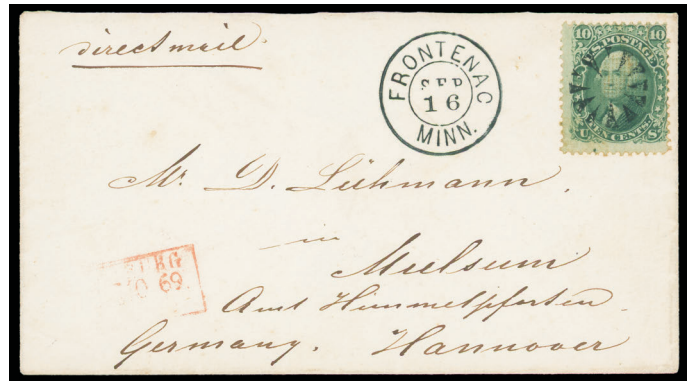 direct mail
FRONTENAC
SEP
16
MINN.
10 U.S. POSTAGE 10
TEN CENTS
U S
Mr. D. Lühmann,
in
Mulsum
Amt Himmelpforten.
Germany. Hannover
69